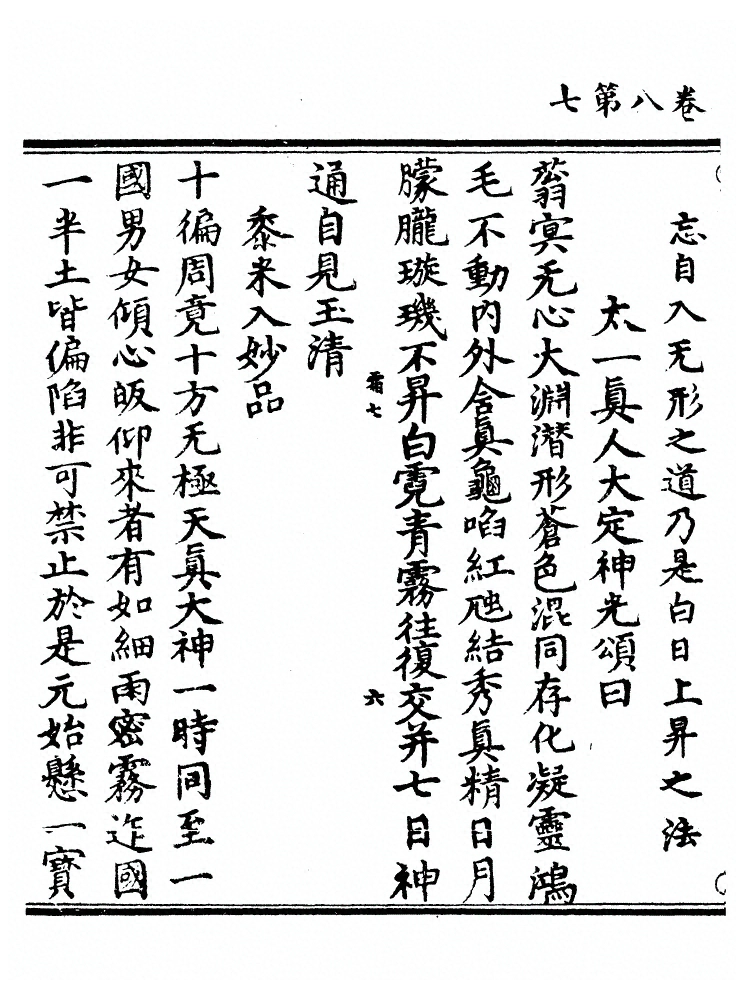 卷八第七
忘自入无形之道乃是白日上昇之法
太一眞人大定神光頌曰
蓊冥无心大淵潛形蒼色混同存化凝靈鴻
毛不動内外含眞龜啗紅虵結秀眞精日月
朦朧璇璣不昇白霓青霧往復交并七日神
霜七 六
通自見玉清
黍米入妙品
十徧周竟十方无極天眞大神一時同至一
國男女傾心皈仰來者有如細雨密霧迮國
一半土皆偏陷非可禁止於是元始懸一寶